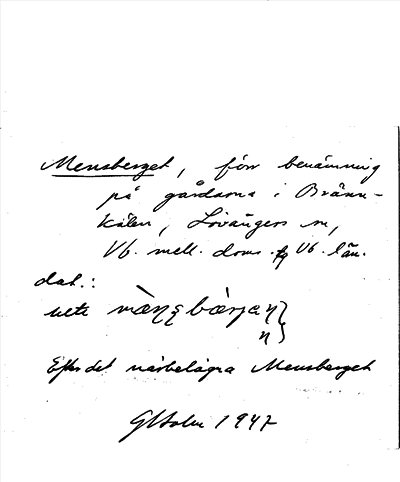 Mensberget, förr benämning
på gårdarna i Bränn-
kälen, Lövångers sn,
Vb. mell. doms. Vb. län.
dat.:
Efter det närbelägna Mensberget
GHolm 1947